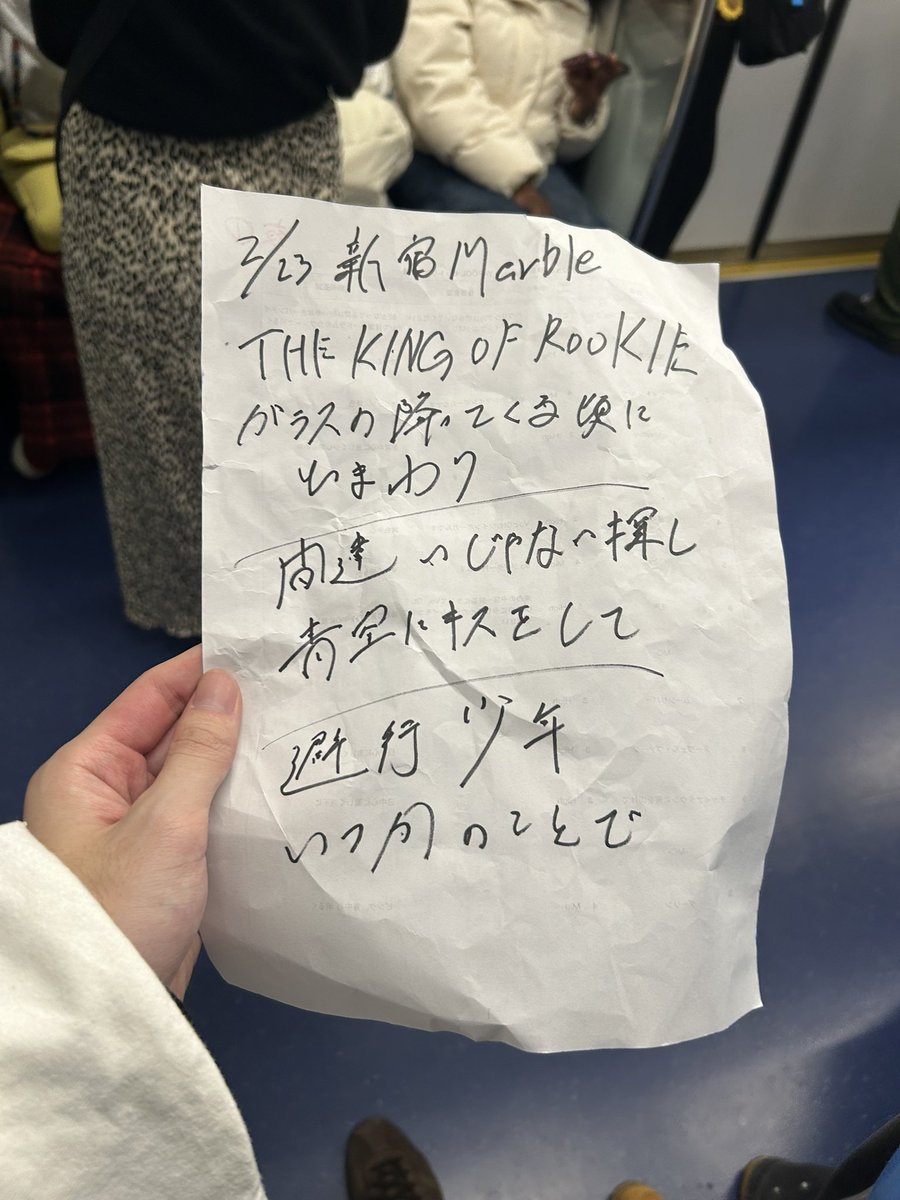 2/23 新宿Marble
THE KING OF ROOKIE
ガラスの降ってくる頃に
ひまわり
間違いじゃない探し
青空にキスをして
避行少年
いつかのことで